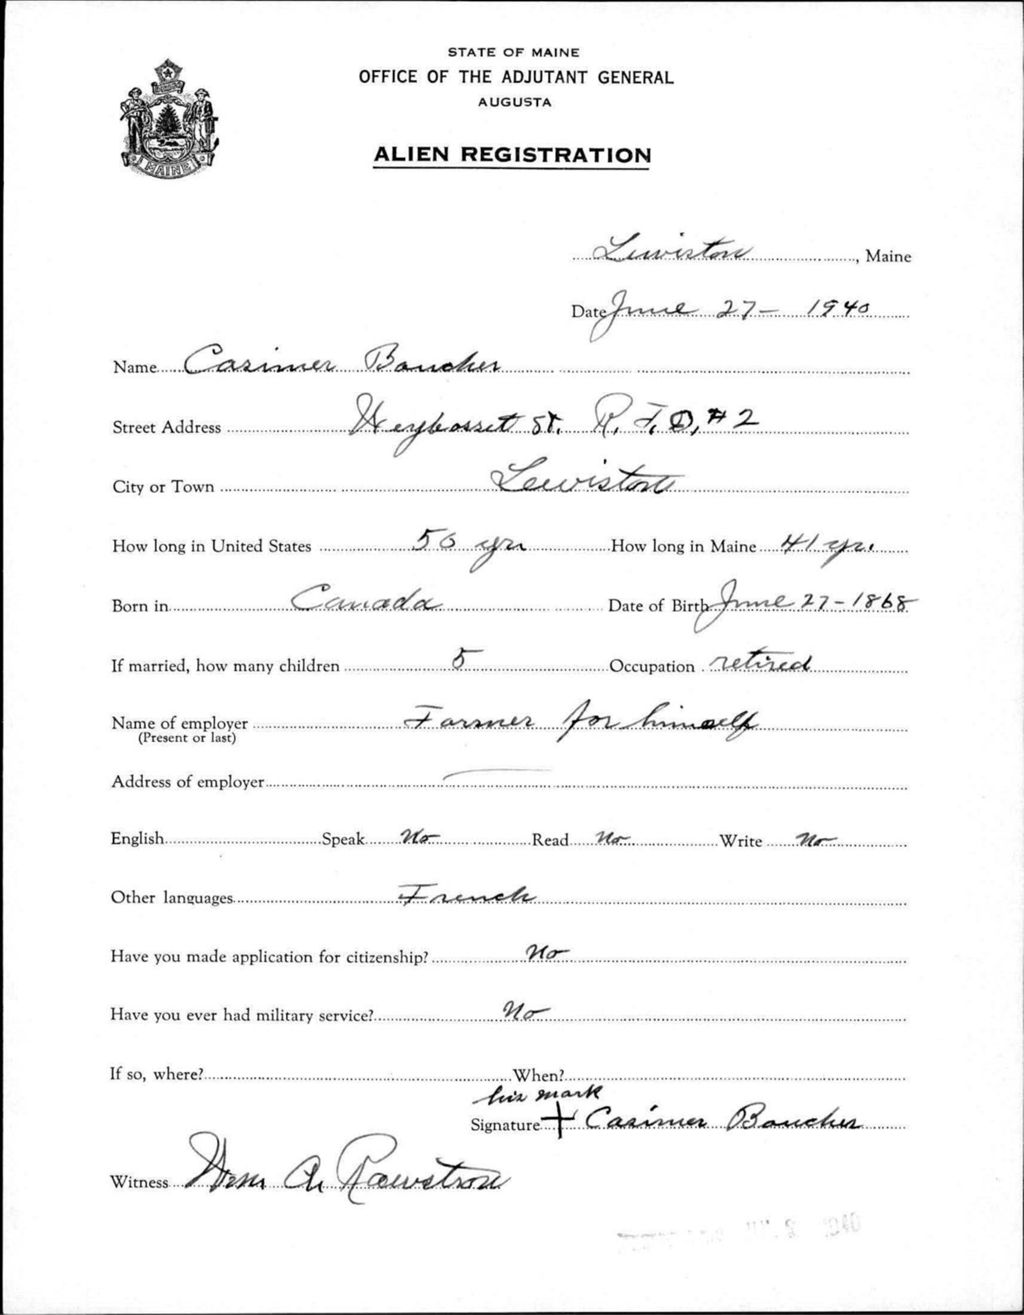 STATE OF MAINE
OFFICE OF THE ADJUTANT GENERAL
AUGUSTA
ALIEN REGISTRATION
MAINE
Lewiston, Maine
Date June 27 - 1940
Name Casimer Boucher
Street Address Weybosset St. R. F. D. #2
City or Town Lewiston
How long in United States 50 yrs How long in Maine 41 yr.
Born in Canada Date of Birth June 27 - 1868
If married, how many children 5 Occupation retired
Name of employer Farmer for himself
(Present or last)
Address of employer —
English Speak No Read No Write No
Other languages French
Have you made application for citizenship? No
Have you ever had military service? No
If so, where? When?
his mark
Signature + Casimer Boucher
Witness Wm A. Rawstron